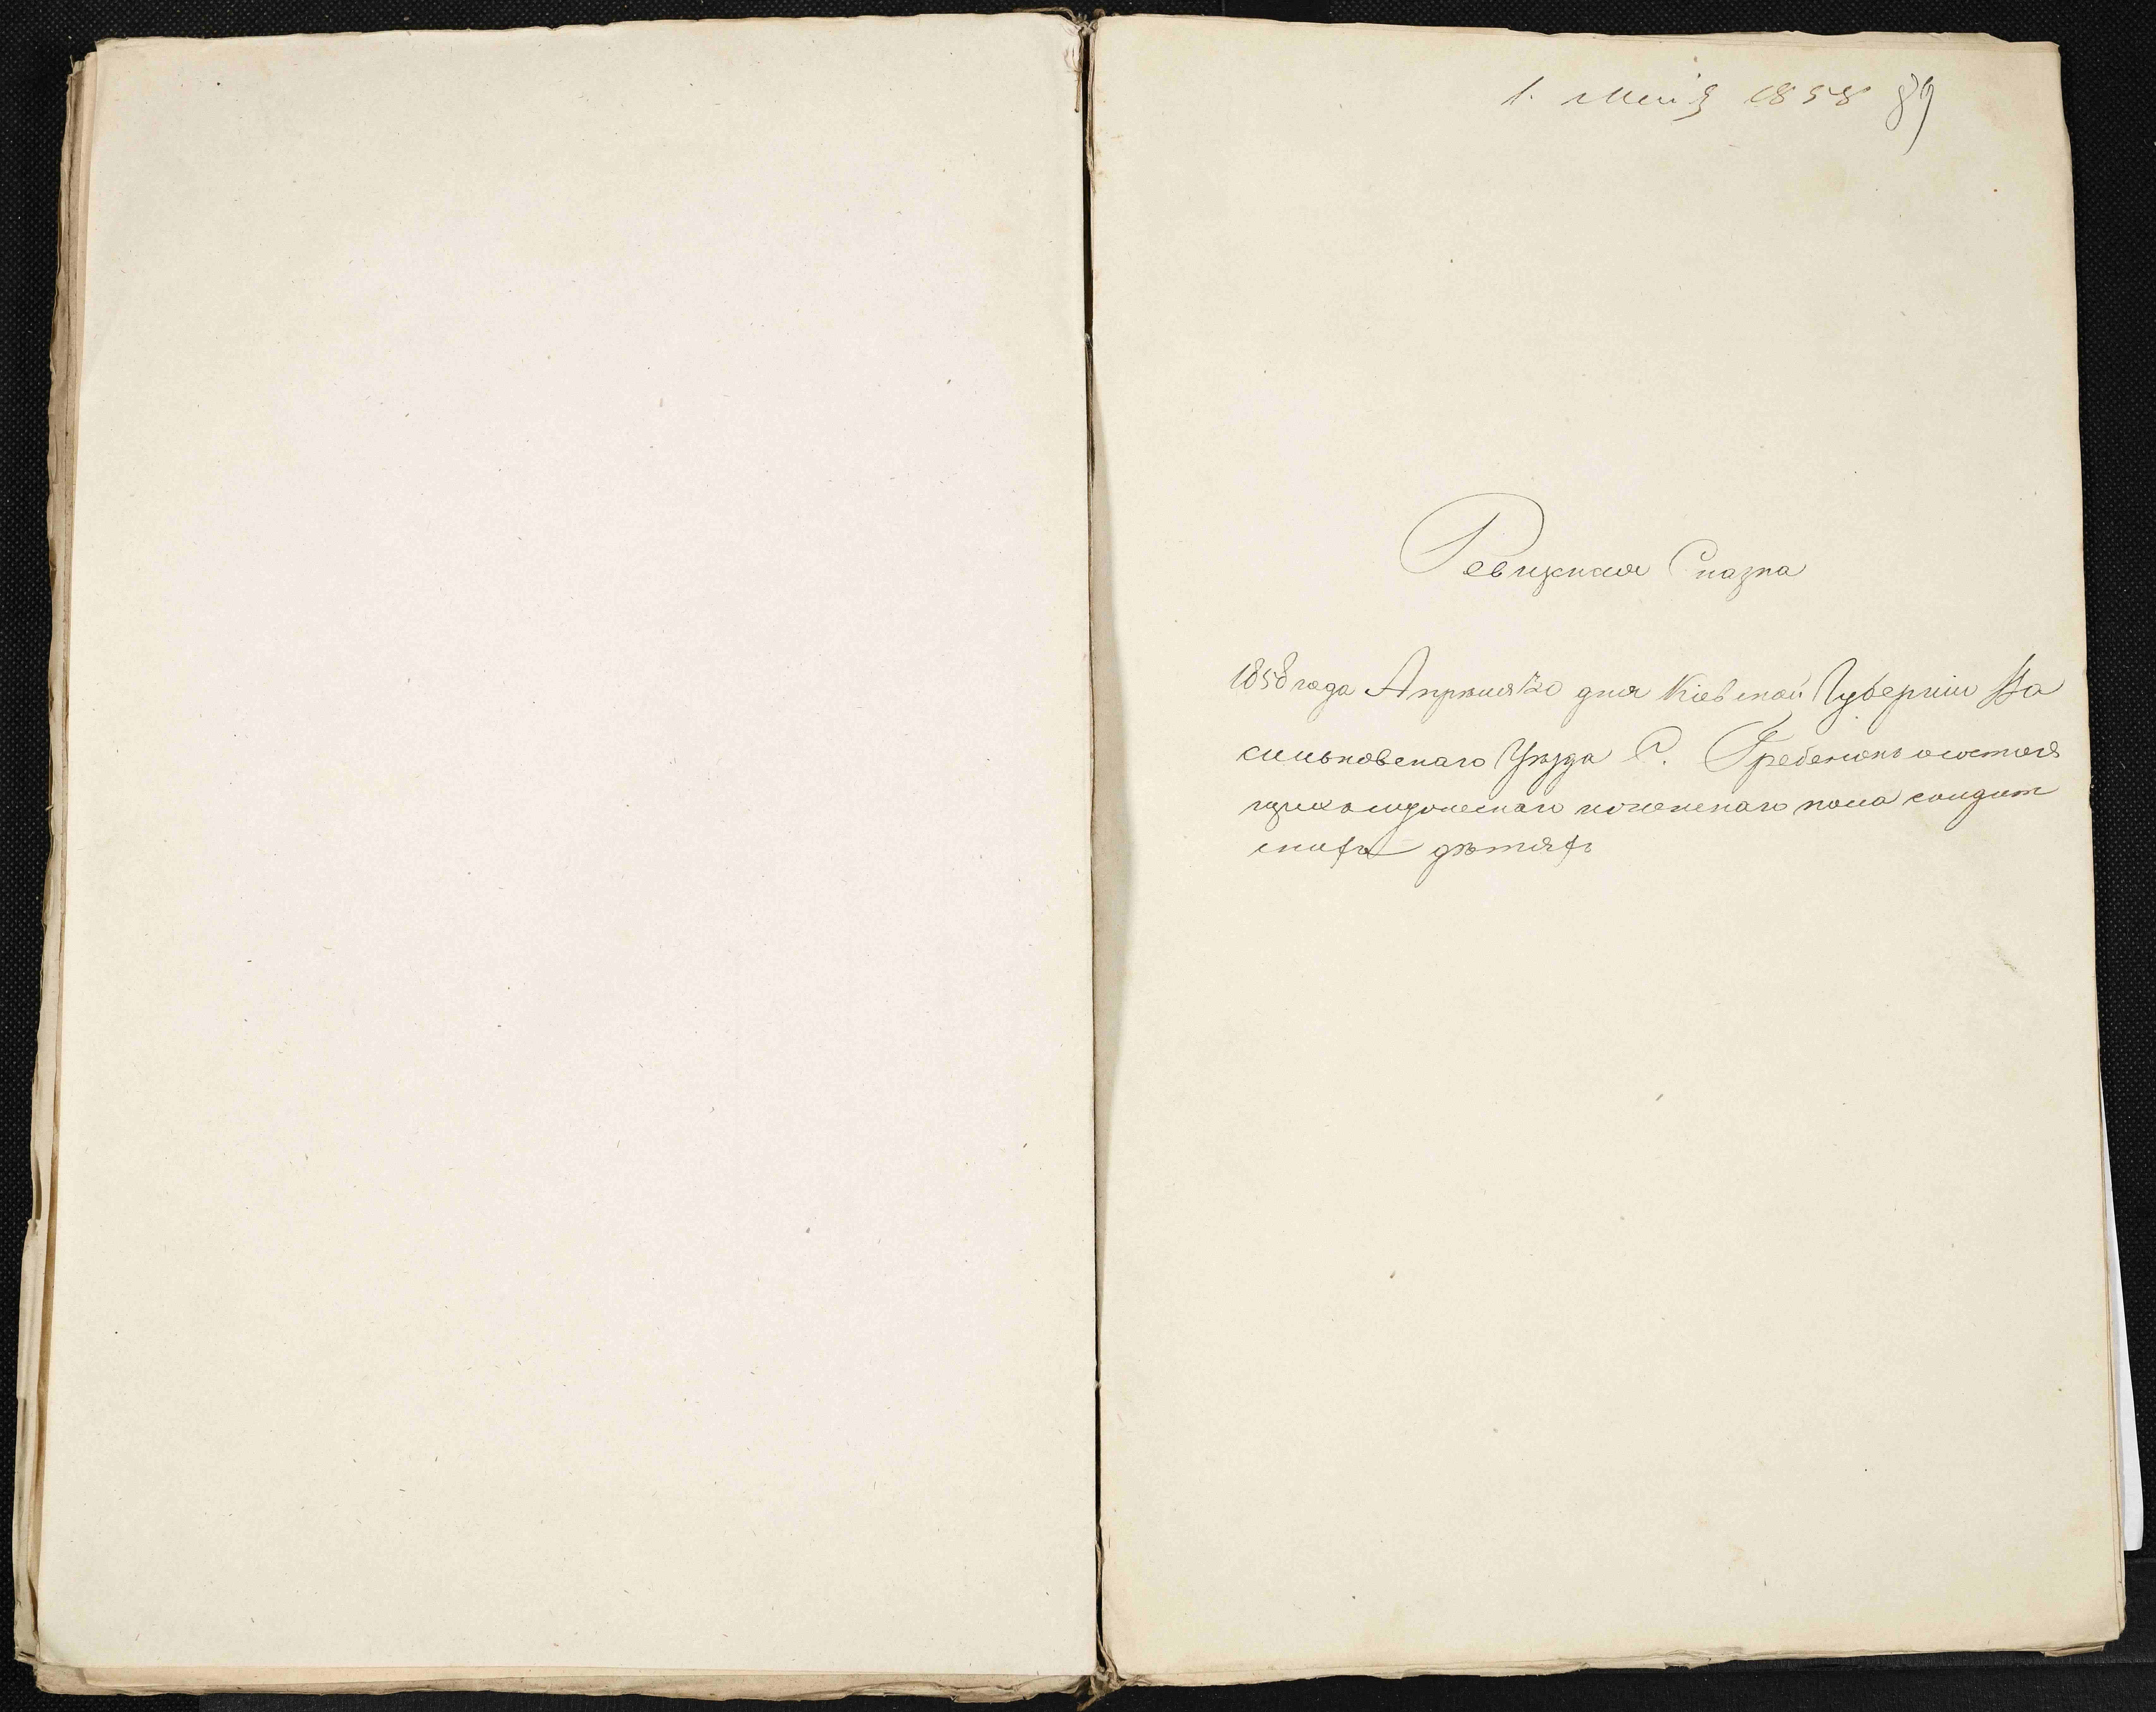 1. Маія 1858 89
Ревизская Сказка
1858 года Апрѣля 20 дня Кіевской Губерніи Ва
сильковскаго Уѣзда С. Гребенокъ о состоя
щихъ женскаго пола солдат
скихъ дѣтяхъ